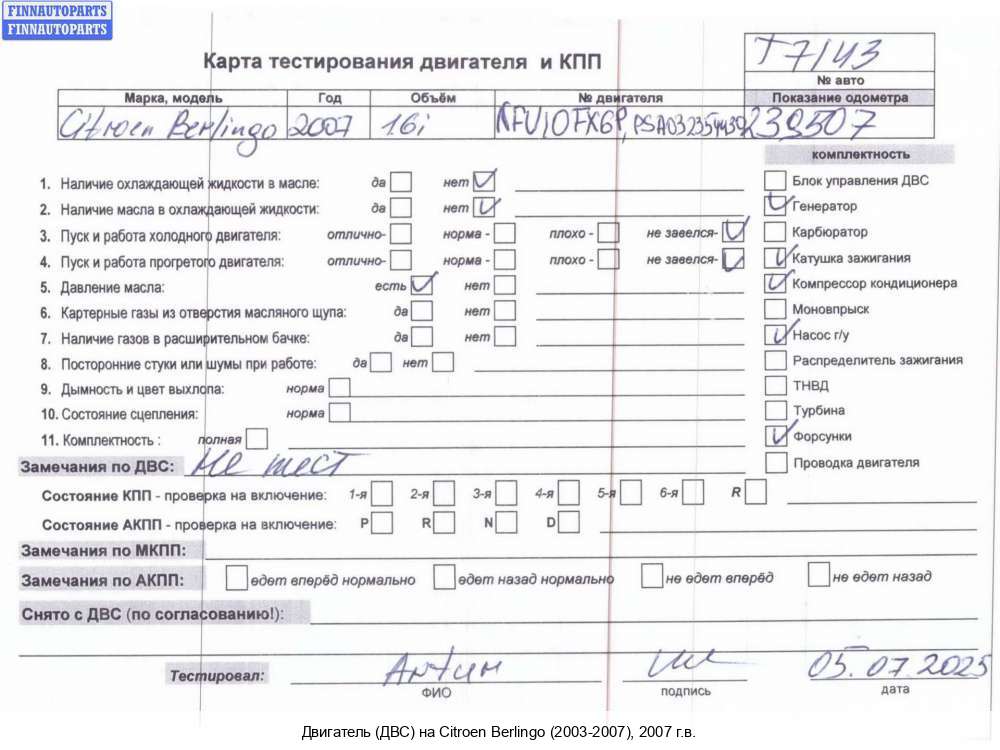 FINNAUTOPARTS
FINNAUTOPARTS
Карта тестирования двигателя и КПП
T7/143
№ авто
Марка, модель Год Объём № двигателя Показание одометра
Citroen Berlingo 2007 1.6i 239507
комплектность
1. Наличие охлаждающей жидкости в масле: да нет
Блок управления ДВС
2. Наличие масла в охлаждающей жидкости: да нет
Генератор
3. Пуск и работа холодного двигателя: отлично- норма - плохо - не завелся-
Карбюратор
4. Пуск и работа прогретого двигателя: отлично- норма - плохо - не завелся-
Катушка зажигания
5. Давление масла: есть нет
Компрессор кондиционера
6. Картерные газы из отверстия масляного щупа: да нет
Моновпрыск
7. Наличие газов в расширительном бачке: да нет
Насос г/у
8. Посторонние стуки или шумы при работе: да нет
Распределитель зажигания
9. Дымность и цвет выхлопа: норма
ТНВД
10. Состояние сцепления: норма
Турбина
11. Комплектность : полная
Форсунки
Замечания по ДВС: Не тест
Проводка двигателя
Состояние КПП - проверка на включение: 1-я 2-я 3-я 4-я 5-я 6-я R
Состояние АКПП - проверка на включение: P R N D
Замечания по МКПП:
Замечания по АКПП: едет вперёд нормально едет назад нормально не едет вперёд не едет назад
Снято с ДВС (по согласованию!):
Тестировал: 05.07.2025
ФИО подпись дата
Двигатель (ДВС) на Citroen Berlingo (2003-2007), 2007 г.в.